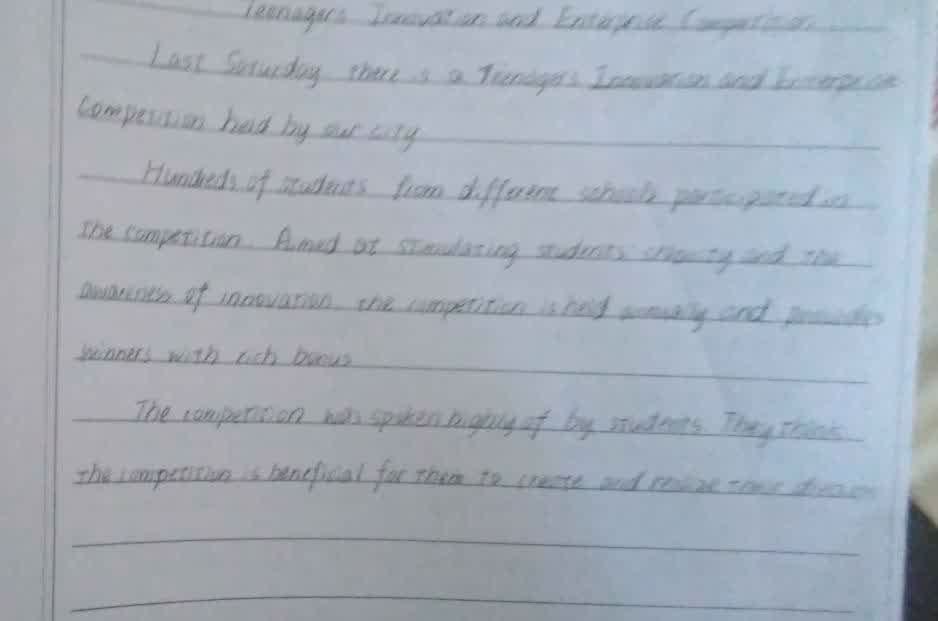 Teenagers Innovation and Enterprise Competition
Last Saturday there is a Teenagers Innovation and Enterprise
Competition held by our city
Hundreds of students from different schools participated in
the competition. Aimed at stimulating students' and the
awareness of innovation, the competition is held annually and provides
winners with rich bonus
The competition was spoken highly of by students. They think
the competition is beneficial for them to create and realize their